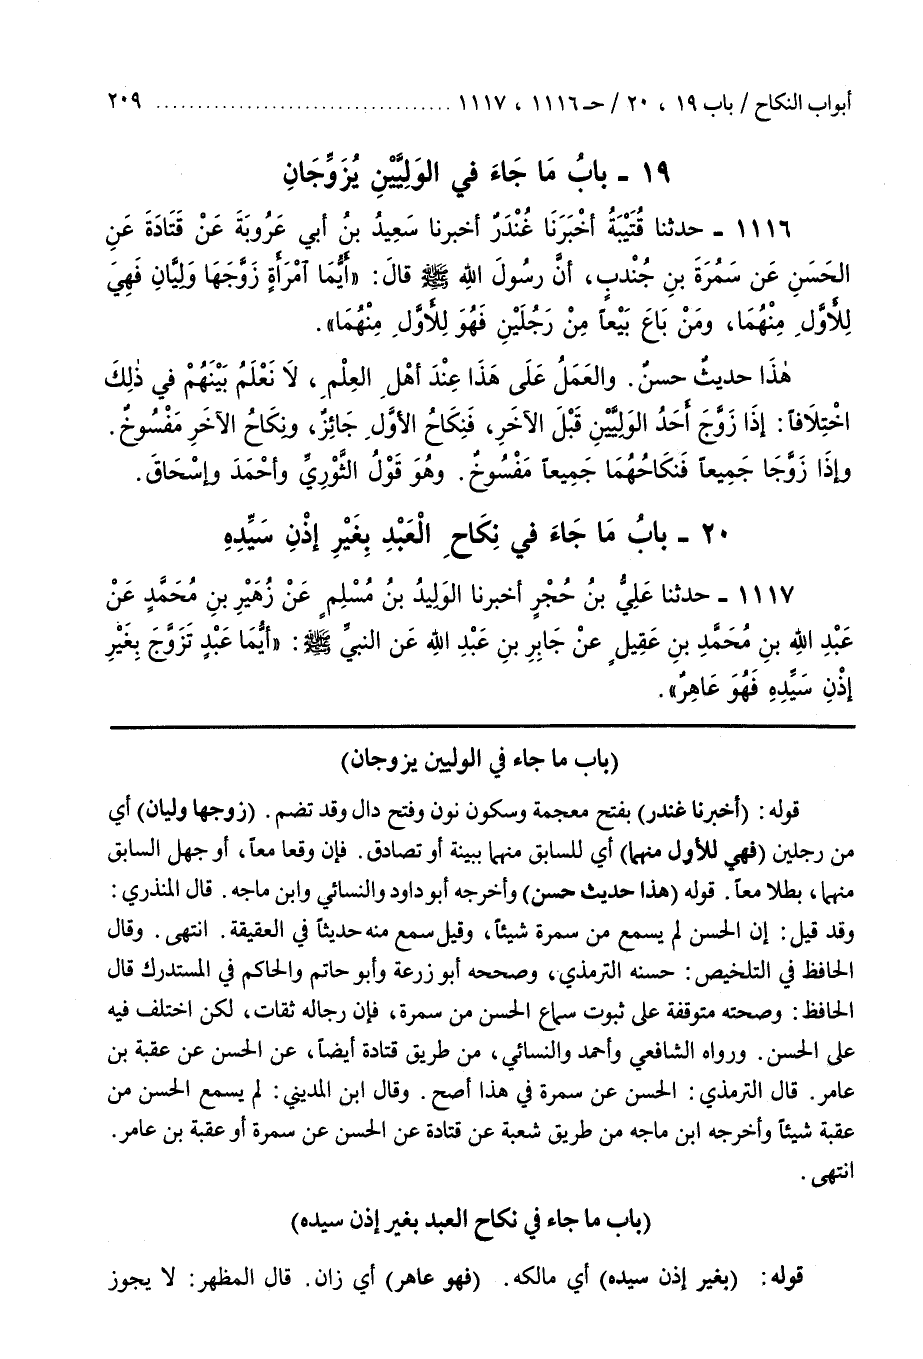 أبواب النكاح / باب ١٩ ، ٢٠ / حـ ١١١٦ ، ١١١٧ .................................... ٢٠٩
١٩ ـ بابُ مَا جَاءَ في الوَلِيَّيْنِ يُزَوِّجَانِ
١١١٦ ـ حدثنا قُتَيْبَةُ أَخْبَرَنَا غُنْدَرٌ أخبرنا سَعِيدُ بنُ أبي عَرُوبَةَ عَنْ قَتَادَةَ عَنِ
الحَسَنِ عَن سَمُرَةَ بنِ جُنْدبٍ، أنَّ رسُولَ الله ﷺ قالَ: «أَيُّمَا آمْرَأَةٍ زَوَّجَهَا وَلِيَّانِ فَهِيَ
لِلأَوَّلِ مِنْهُمَا، ومَنْ بَاعَ بَيْعاً مِنْ رَجُلَيْنِ فَهُوَ لِلأَوَّلِ مِنْهُمَا».
هٰذَا حديثٌ حسنٌ. والعَمَلُ عَلَى هَذَا عِنْدَ أهْلِ العِلْمِ، لَا نَعْلَمُ بَيْنَهُمْ في ذٰلِكَ
اخْتِلَافاً: إذَا زَوَّجَ أَحَدُ الوَلِيَّيْنِ قَبْلَ الآخَرِ، فَنِكَاحُ الأوَّلِ جَائِزٌ، ونِكَاحُ الآخَرِ مَفْسُوخٌ.
وإذَا زَوَّجَا جَمِيعاً فَنكَاحُهُمَا جَمِيعاً مَفْسُوخٌ. وهُوَ قَوْلُ الثَّوْرِيِّ وأحْمَدَ وإسْحَاقَ.
٢٠ ـ بابُ مَا جَاءَ في نِكَاحِ الْعَبْدِ بِغَيْرِ إذْنِ سَيِّدِهِ
١١١٧ ـ حدثنا عَلِيُّ بنُ حُجْرٍ أخبرنا الوَلِيدُ بنُ مُسْلِمٍ عَنْ زُهَيْرِ بنِ مُحَمَّدٍ عَنْ
عَبْدِ الله بنِ مُحَمَّدِ بنِ عَقِيلٍ عنْ جَابِرِ بنِ عَبْدِ الله عَن النبيِّ ﷺ: «أيُّمَا عَبْدٍ تَزَوَّجَ بِغَيْرِ
إذْنِ سَيِّدِهِ فَهُوَ عَاهِرٌ».
(باب ما جاء في الوليين يزوجان)
قوله: (أخبرنا غندر) بفتح معجمة وسكون نون وفتح دال وقد تضم. (زوجها وليان) أي
من رجلين (فهي للأول منهما) أي للسابق منهما ببينة أو تصادق. فإن وقعا معاً، أو جهل السابق
منهما، بطلا معاً. قوله (هذا حديث حسن) وأخرجه أبو داود والنسائي وابن ماجه. قال المنذري:
وقد قيل: إن الحسن لم يسمع من سمرة شيئاً، وقيل سمع منه حديثاً في العقيقة. انتهى. وقال
الحافظ في التلخيص: حسنه الترمذي، وصححه أبو زرعة وأبو حاتم والحاكم في المستدرك قال
الحافظ: وصحته متوقفة على ثبوت سماع الحسن من سمرة، فإن رجاله ثقات، لكن اختلف فيه
على الحسن. ورواه الشافعي وأحمد والنسائي، من طريق قتادة أيضاً، عن الحسن عن عقبة بن
عامر. قال الترمذي: الحسن عن سمرة في هذا أصح. وقال ابن المديني: لم يسمع الحسن من
عقبة شيئاً وأخرجه ابن ماجه من طريق شعبة عن قتادة عن الحسن عن سمرة أو عقبة بن عامر.
انتهى.
(باب ما جاء في نكاح العبد بغير إذن سيده)
قوله: (بغير إذن سيده) أي مالكه. (فهو عاهر) أي زان. قال المظهر: لا يجوز